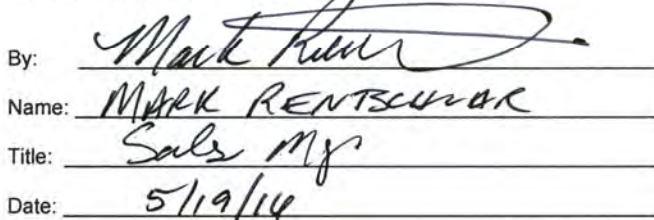 By: Mark
Name: MARK RENTSCHLAR
Title: Sales Mgr
Date: 5/19/16